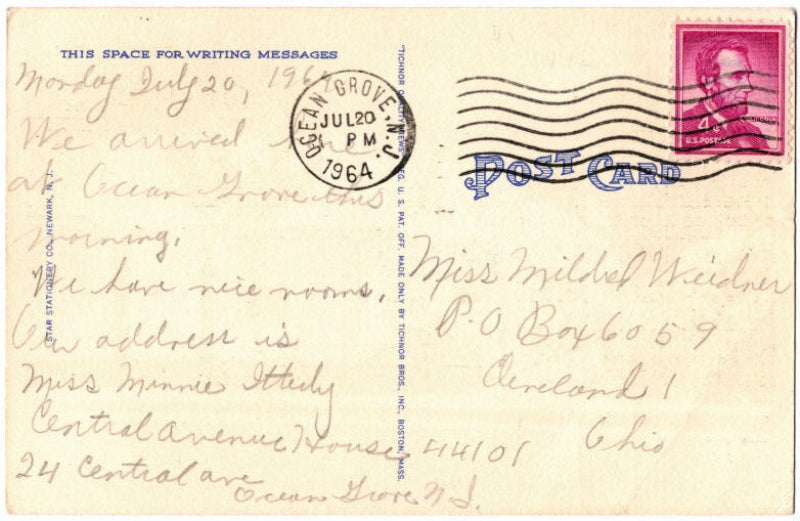 THIS SPACE FOR WRITING MESSAGES
Monday July 20, 1964
We arrived
at Ocean Grove this
morning.
We have nice rooms.
Our address is
Miss Minnie Itterly
Central Avenue House
24 Central ave
Ocean Grove N.J.
STAR STATIONERY CO., NEWARK, N. J.
"TICHNOR QUALITY VIEWS," REG. U. S. PAT. OFF. MADE ONLY BY TICHNOR BROS., INC., BOSTON, MASS.
OCEAN GROVE, N.J.
JUL 20
PM
1964
4¢
U.S. POSTAGE
POST CARD
Miss Mildred Weidner
P.O Box 6059
Cleveland 1
44101 Ohio